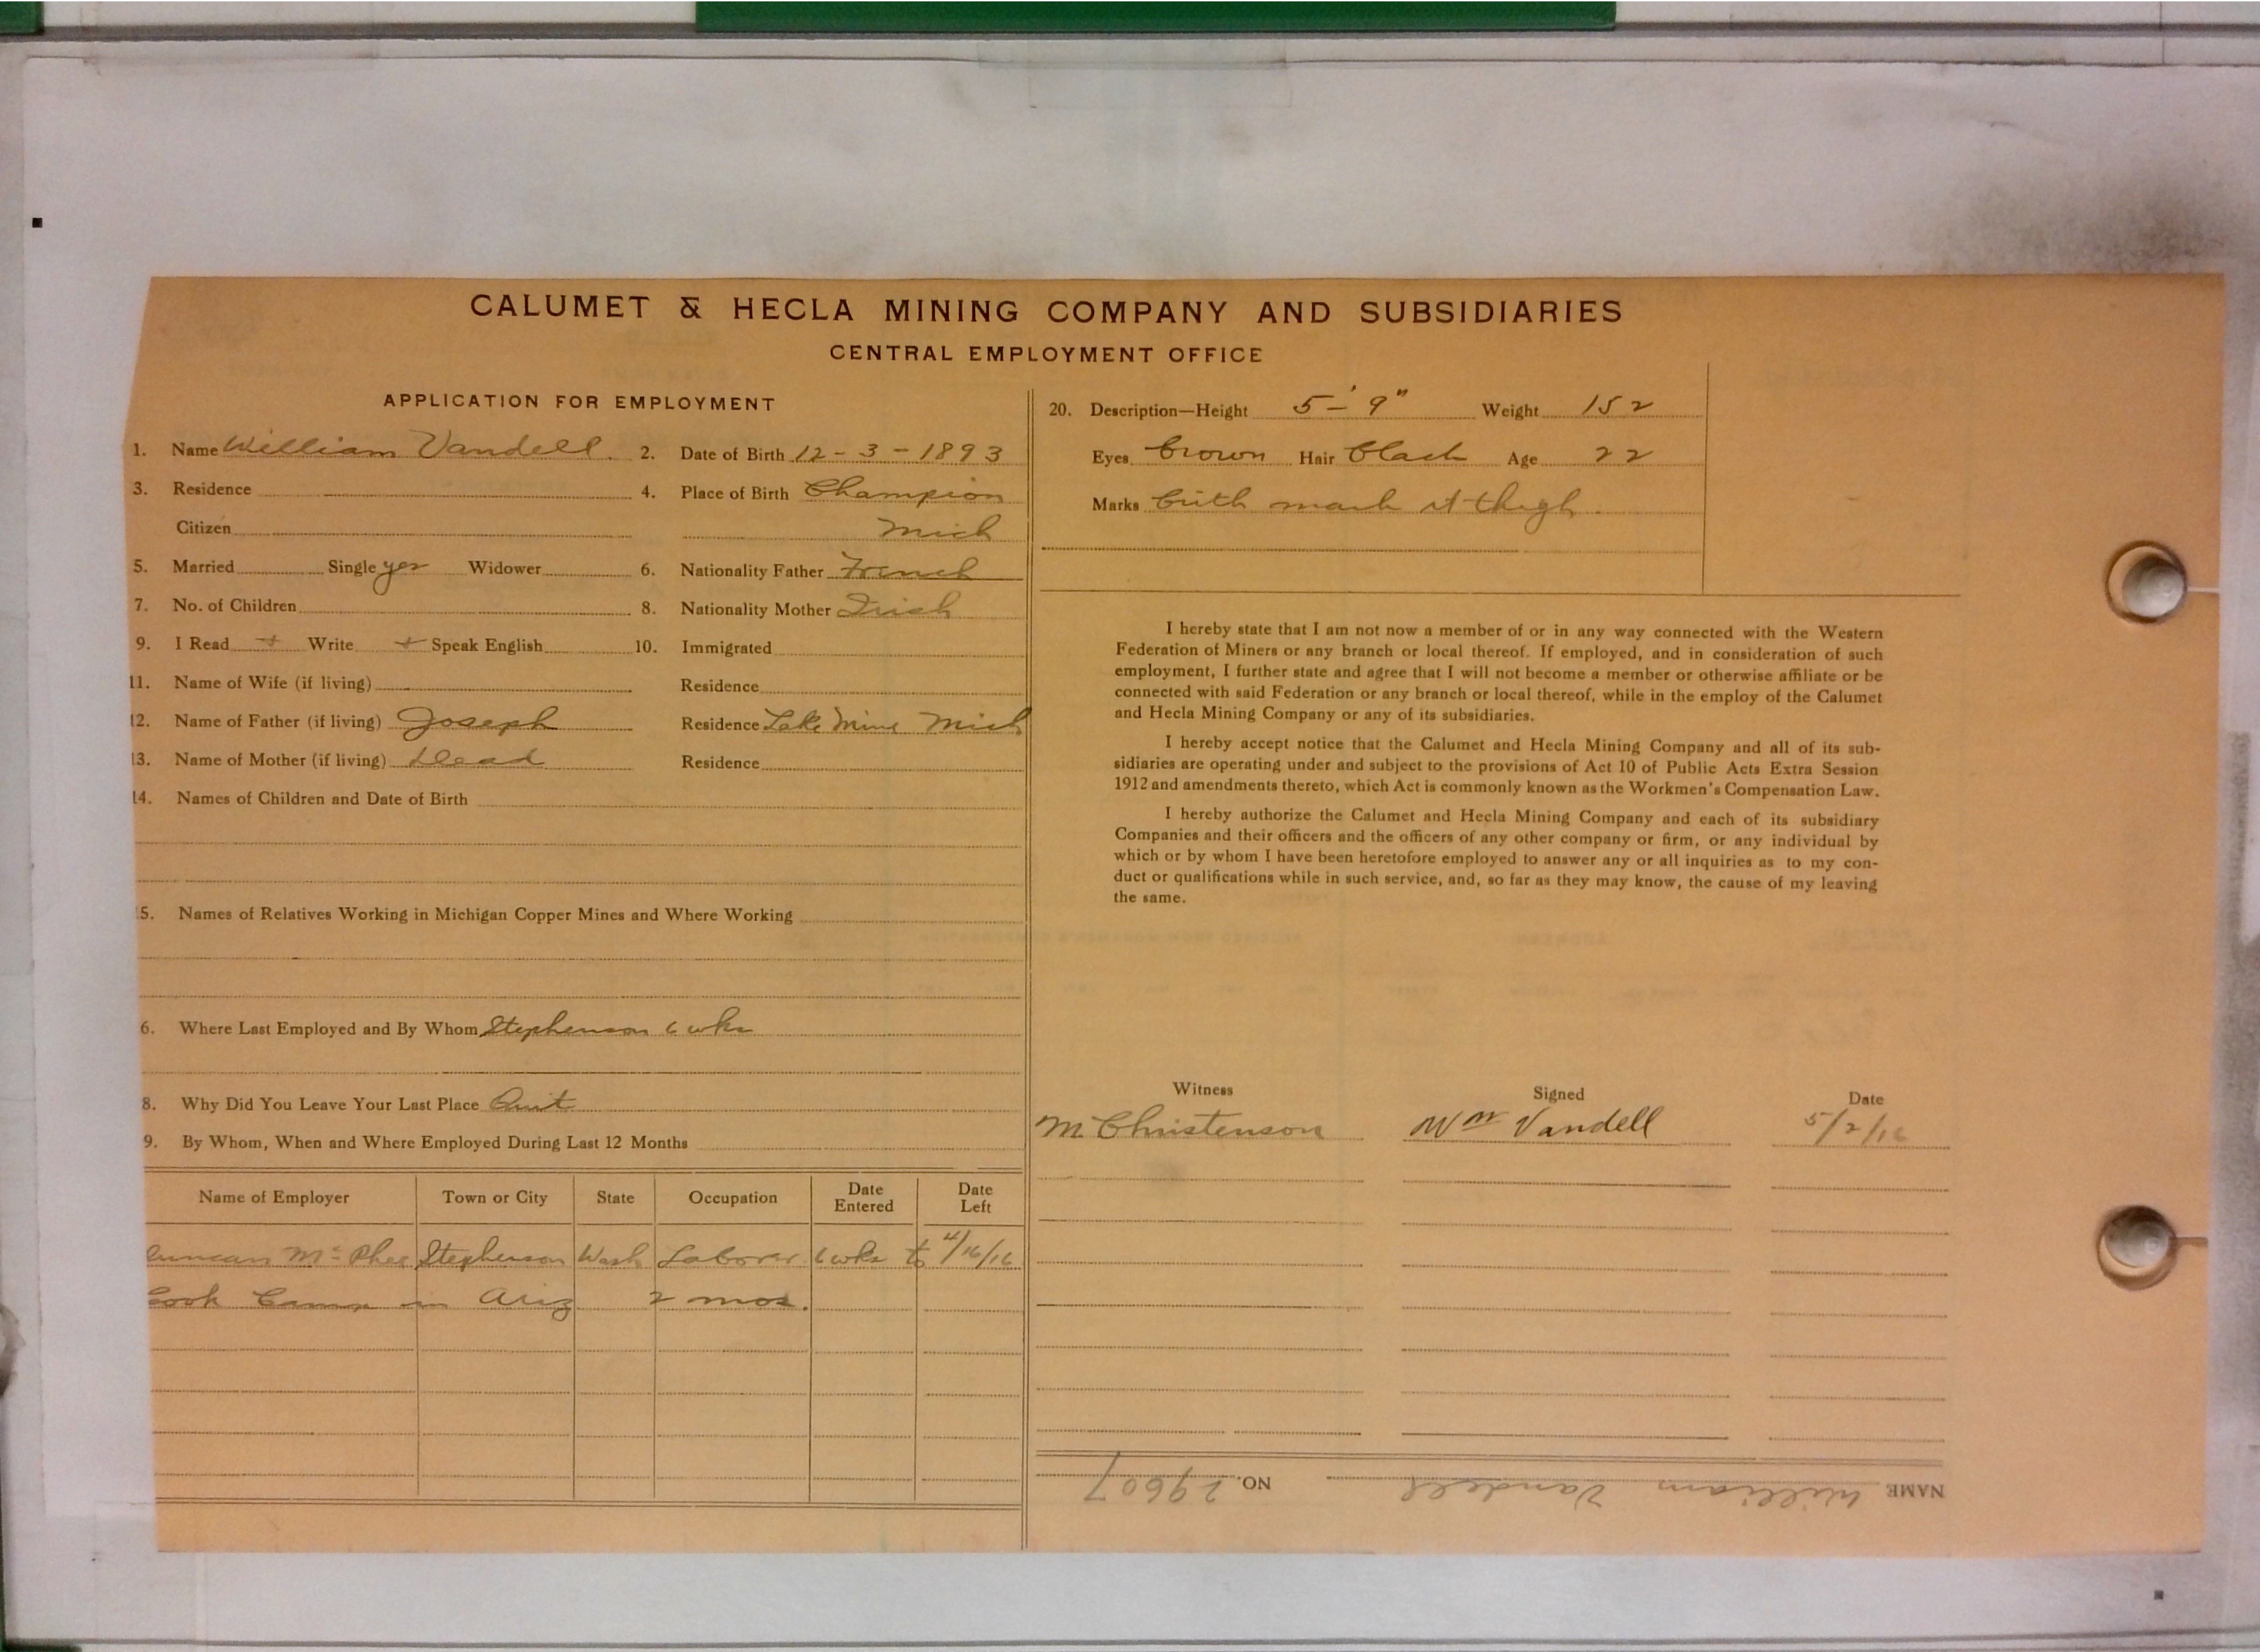 CALUMET & HECLA MINING COMPANY AND SUBSIDIARIES
CENTRAL EMPLOYMENT OFFICE
APPLICATION FOR EMPLOYMENT
1. Name William Vandell. 2. Date of Birth 12-3-1893
3. Residence 4. Place of Birth Champion
Citizen Mich
5. Married Single yes Widower 6. Nationality Father French
7. No. of Children 8. Nationality Mother Irish
9. I Read + Write + Speak English 10. Immigrated
11. Name of Wife (if living) Residence
12. Name of Father (if living) Joseph Residence Lake Mine Mich
13. Name of Mother (if living) Dead Residence
14. Names of Children and Date of Birth
5. Names of Relatives Working in Michigan Copper Mines and Where Working
6. Where Last Employed and By Whom Stephenson 6 wks
8. Why Did You Leave Your Last Place Quit
9. By Whom, When and Where Employed During Last 12 Months
Name of Employer Town or City State Occupation Date Entered Date Left
Duncan McPhee Stephenson Wash Laborer 6 wks to 4/16/16
Cook Camp in Ariz 2 mos.
20. Description—Height 5-'9" Weight 152
Eyes brown Hair black Age 22
Marks birth mark rt thigh.
I hereby state that I am not now a member of or in any way connected with the Western
Federation of Miners or any branch or local thereof. If employed, and in consideration of such
employment, I further state and agree that I will not become a member or otherwise affiliate or be
connected with said Federation or any branch or local thereof, while in the employ of the Calumet
and Hecla Mining Company or any of its subsidiaries.
I hereby accept notice that the Calumet and Hecla Mining Company and all of its sub-
sidiaries are operating under and subject to the provisions of Act 10 of Public Acts Extra Session
1912 and amendments thereto, which Act is commonly known as the Workmen's Compensation Law.
I hereby authorize the Calumet and Hecla Mining Company and each of its subsidiary
Companies and their officers and the officers of any other company or firm, or any individual by
which or by whom I have been heretofore employed to answer any or all inquiries as to my con-
duct or qualifications while in such service, and, so far as they may know, the cause of my leaving
the same.
Witness Signed Date
M Christenson Wm Vandell 5/2/16
NAME William Vandell NO. 29607